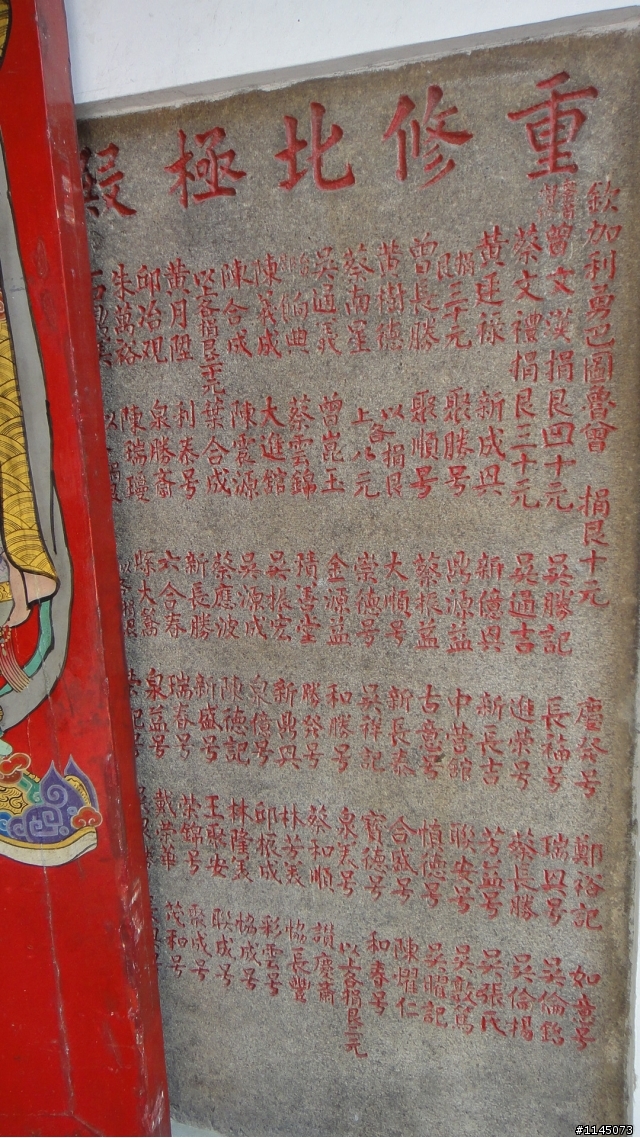 重修北極殿
欽加利勇巴圖魯曾 捐艮十元 慶發号 鄭裕記 如意号
曾文漢捐艮四十元 吳勝記 長福号 瑞興号 吳倫
蔡文禮捐艮三十元 吳通吉 進榮号 蔡長勝 吳倫揚
黃廷祿 新成興 新億興 新長吉 芳益号 吳張氏
捐艮三十元 聚勝号 鼎源益 中營館 聯安号 吳敦篤
曾長勝 聚順号 蔡振益 占意号 慎德号 吳曜記
黃樹德 以各捐艮 大順号 新長泰 合盛号 陳耀仁
蔡南星 上八元 崇德号 吳祥記 寶德号 和春号
吳通義 曾崑玉 金源益 和勝号 泉美号 以上各捐艮二元
典 蔡雲錦 堂 勝發号 蔡和順 讚慶齋
陳義成 大進館 吳振宏 新鼎興 林芳美 協長豐
陳合成 陳震源 吳源成 泉億号 邱振成 彩雲号
以各捐艮二元 葉合成 蔡應波 陳德記 林隆美 協成号
黃月陞 利泰号 新長勝 新盛号 王聚安 聯成号
邱治观 泉勝齋 六合春 瑞春号 榮錦号 聚成号
朱萬裕 陳瑞 大 泉益号 戴榮華 茂和号